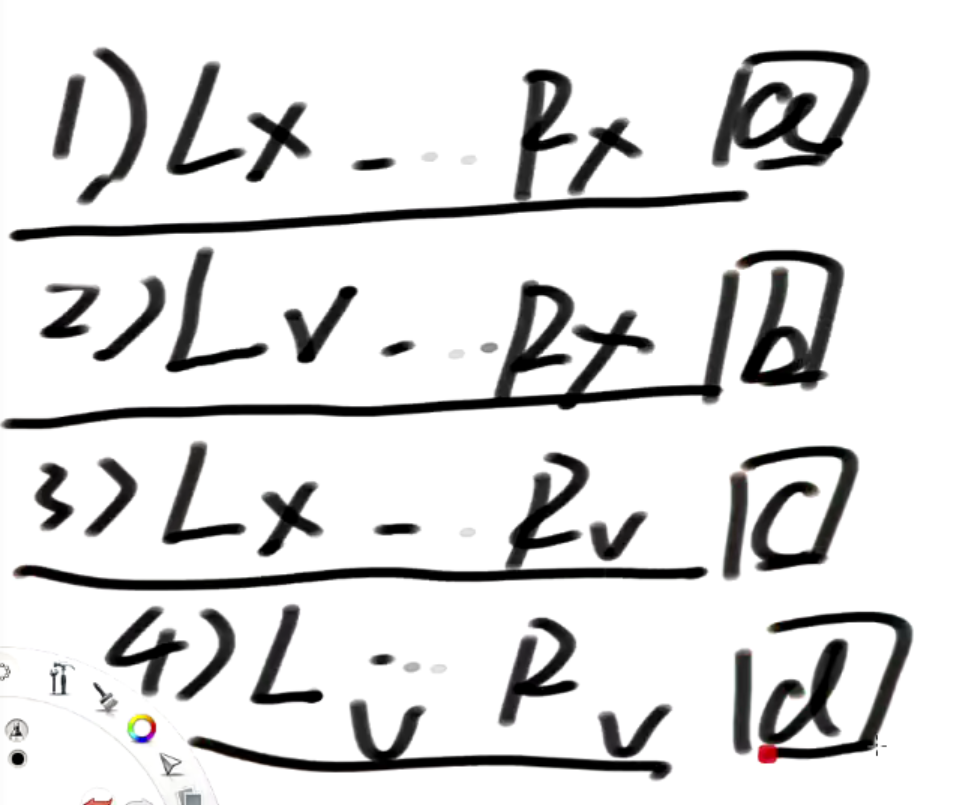 1) Lx - .. Rx a
2) Lv - .. Rx b
3) Lx - . Rv c
4) Lv - .. Rv d